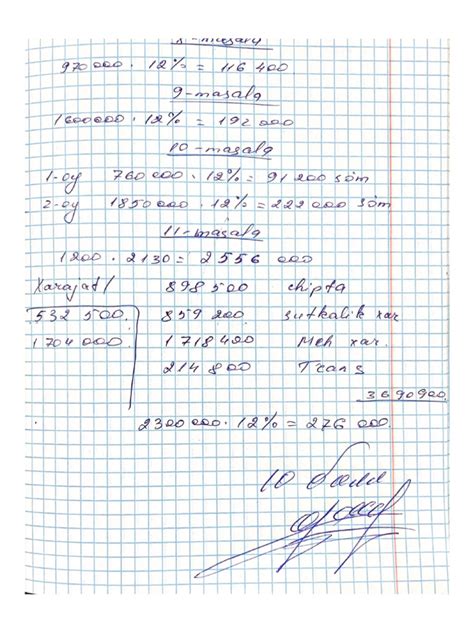 8-masala
970000 · 12% = 116 400
9-masala
1600000 · 12% = 192 000
10-masala
1-oy 760 000 · 12% = 91 200 söm
2-oy 1850000 · 12% = 222 000 söm
11-masala
1200 · 2130 = 2 556 000
Xarajat/ 898 500 chipta
532 500 859 200 sutkalik xar
1704 000 1 718 400 Meh xar.
214 800 Trans
3690900
2300000 · 12% = 276 000
10 балл